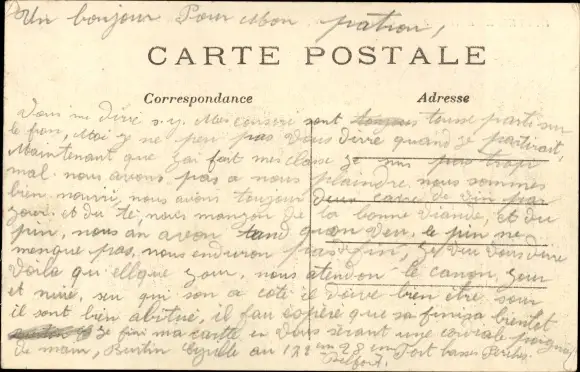 Un bonjour Pour mon patron,
CARTE POSTALE
Correspondance
Adresse
Vous me diré s.y. Mes sont tousse parti sur
le fron, Moi je ne peu pas Vous dire quand je partirait,
Maintenant que jai fait mes classe je suis pas trop
mal nous avons pas a nous plaindre nous sommes
bien nourri, nous avons toujour deux care de vin par
jour. et du té, nous manjon de la bonne viande, et du
pin, nous an avon tand quon veu, le pin ne
menque pas, nous enduron pas fin, je veu vous dire
voila qu ellque jour, nous atendon le canon, jour
et nuie, seu qui son a coté il doive bien être sour
il sont bien abitué, il fau espere que sa finisa bientot
je fini ma carte en Vous serant une poigné
de main, Burtin au 172 em 28 em Fort
Belfort.